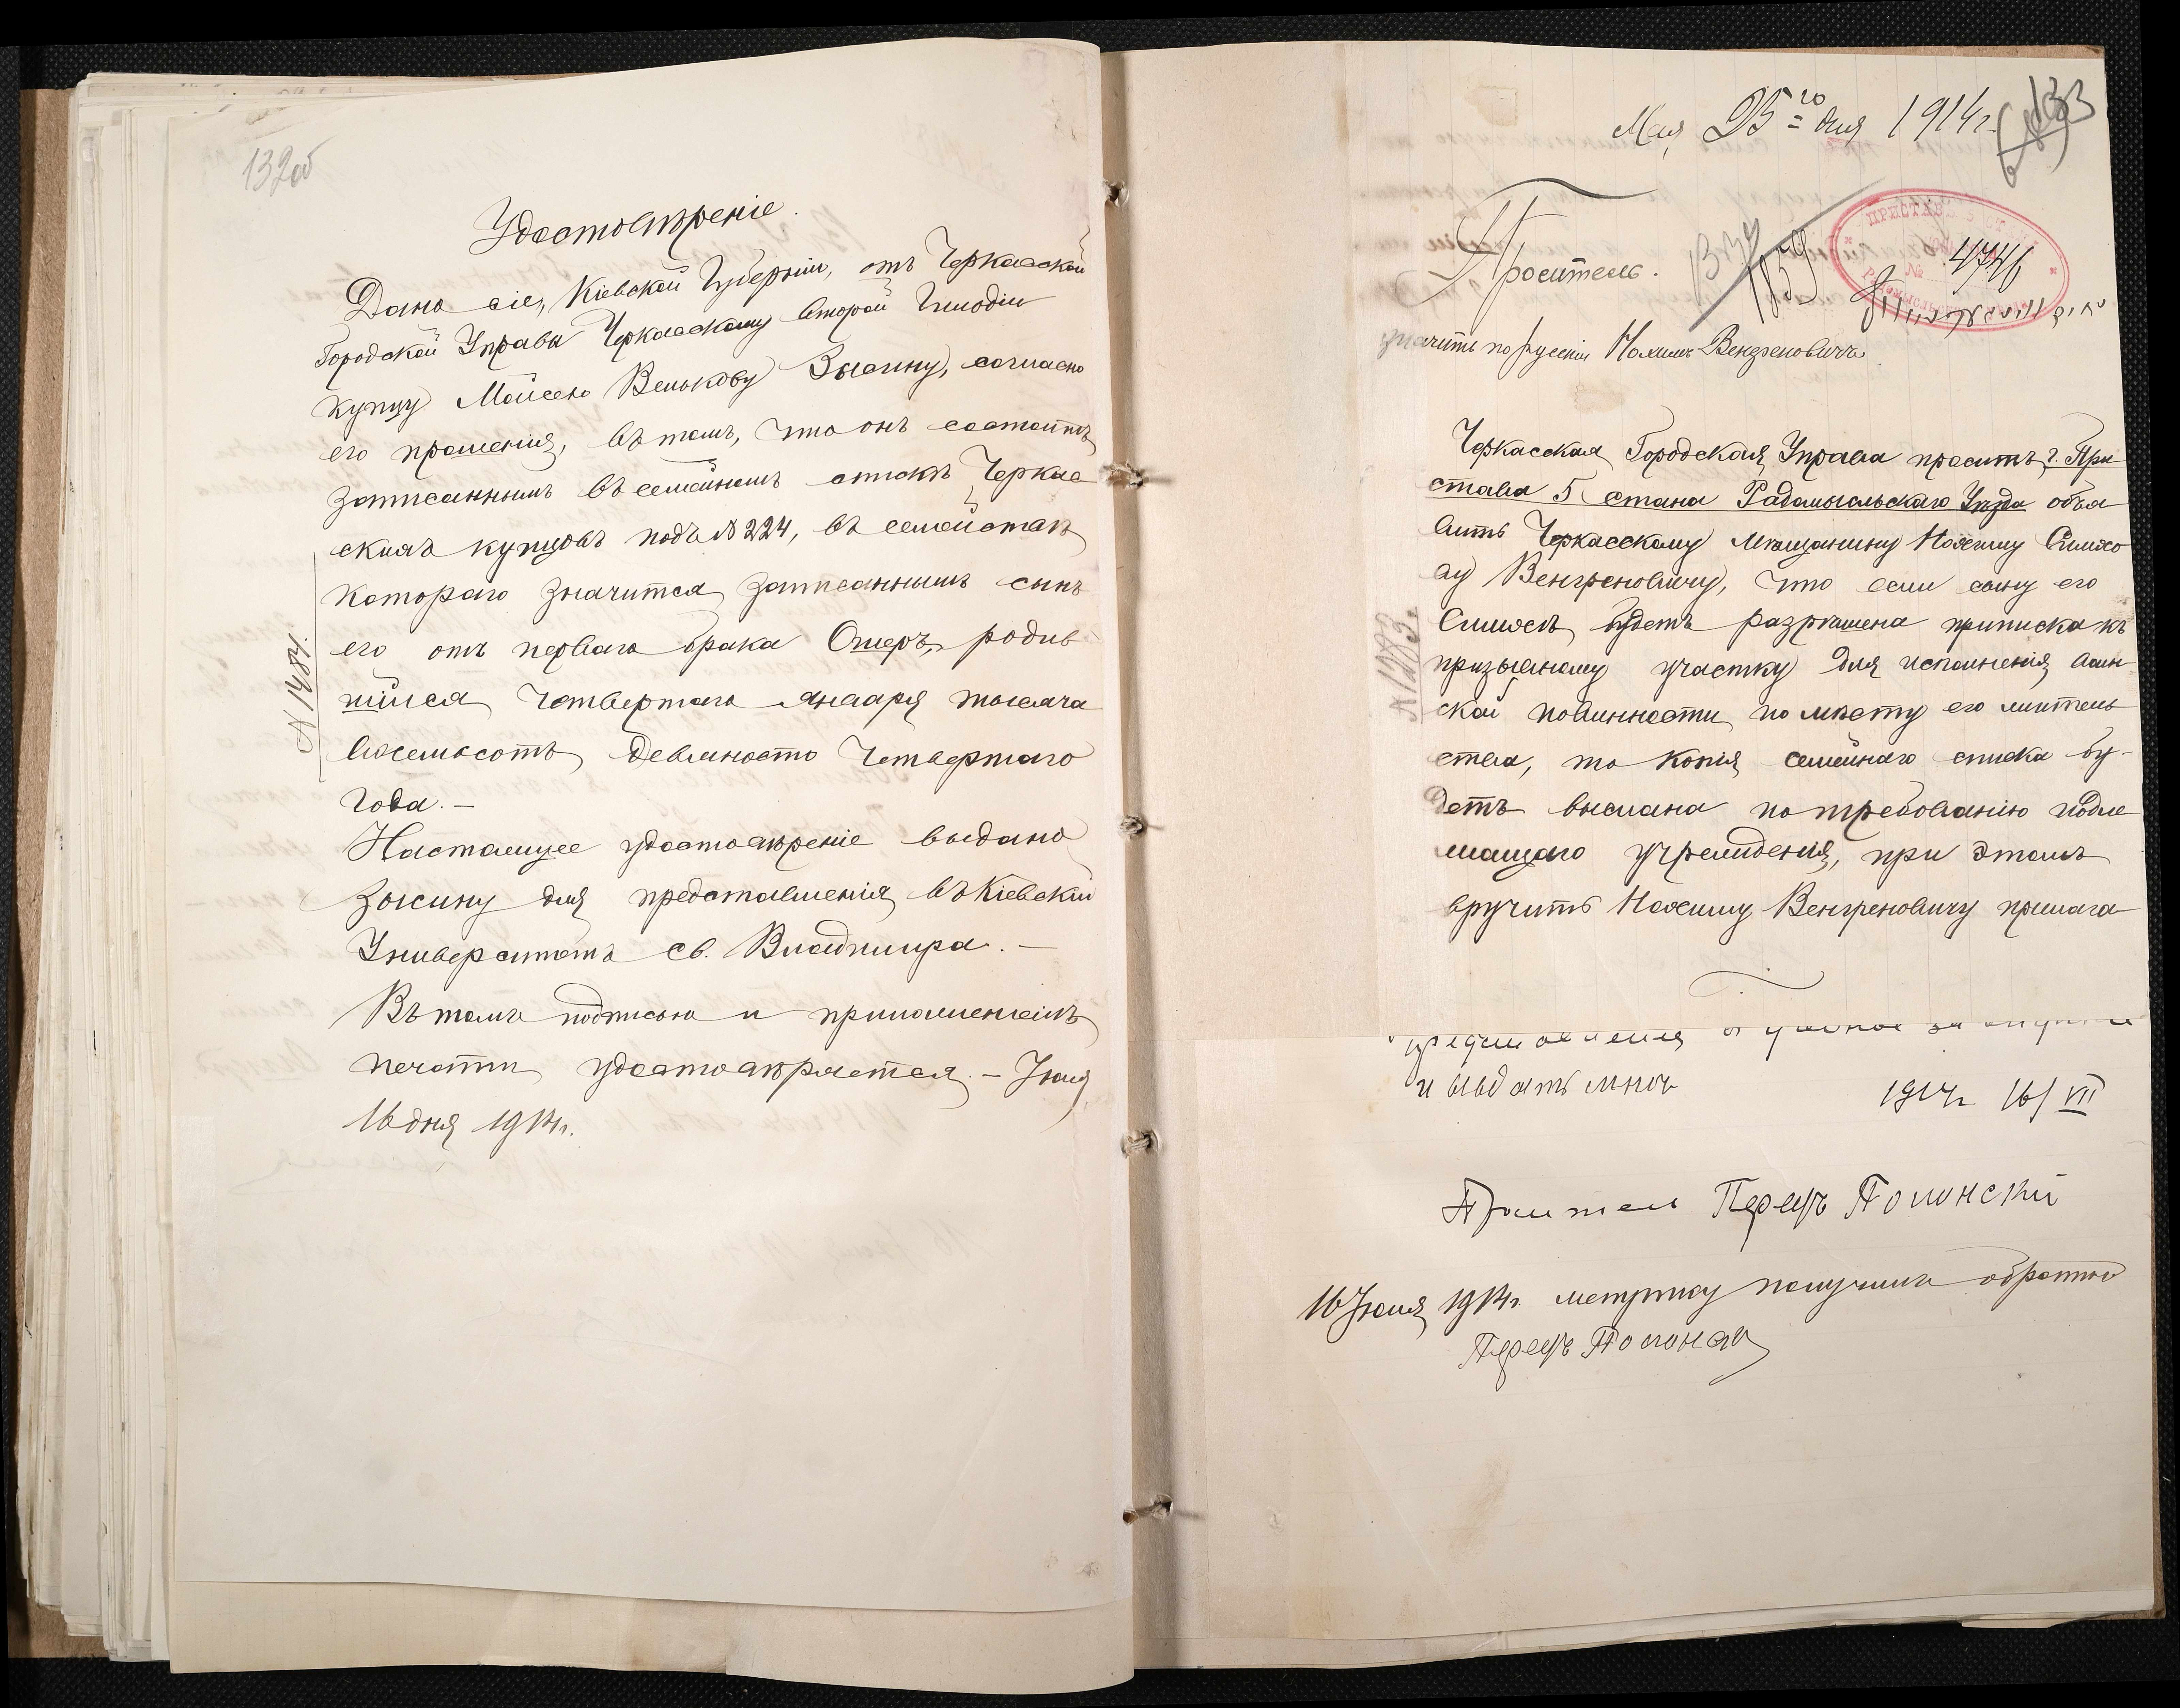 132об
Удостовѣреніе.
Дано сіе, Кіевской Губерніи, отъ Черкасской
Городской Управы Черкасскому Второй Гильдіи
купцу Мойсею Велькову Зысину, согласно
его прошенія, въ томъ, что онъ состоитъ
записаннымъ въ семейномъ спискѣ Черкас
скихъ купцовъ подъ № 224, въ семействѣ
котораго значится записаннымъ сынъ
его отъ перваго брака Ошеръ, родив
шійся четвертаго января тысяча
восемьсотъ девяносто четвертаго
года.—
Настоящее удостовѣреніе выдано
Зысину для представленія въ Кіевскій
Университетъ св. Владиміра.—
Въ томъ подписью и приложеніемъ
печати удостовѣряется.— Іюля
16 дня 1914г.
№ 1484.
Мая 25го дня 1914г.
133
Проситель.
1859
ПРИСТАВ
№ 4746
значитъ по русски Нохимъ Венгреновичъ.
Черкасская Городская Управа проситъ г. При
става 5 стана Радомысльскаго Уѣзда объя
вить Черкасскому мѣщанину Нохиму Симхо
ву Венгреновичу, что если сыну его
Симхѣ будетъ разрѣшена приписка къ
призывному участку для исполненія воин
ской повинности по мѣсту его житель
ства, то копія семейнаго списка бу-
детъ выслана по требованію подле
жащаго учрежденія, при этомъ
вручить Нохиму Венгреновичу прилага
№ 1283.
и выдать мнѣ
1914г 16/VII
Проситель Перецъ Полонскій
16 Іюля 1914г. метрику получилъ обратно
Перецъ Полонскій